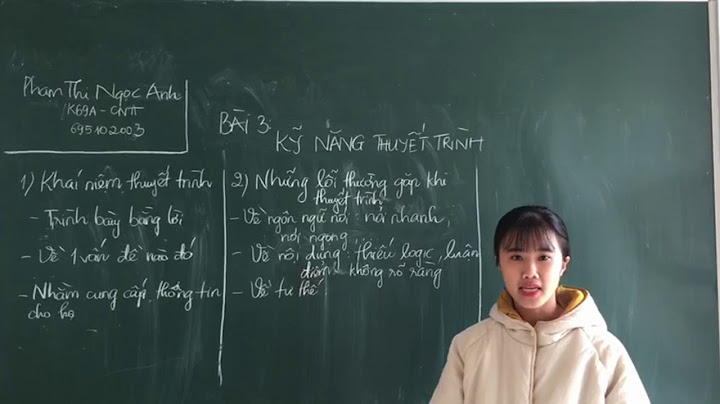 Phạm Thị Ngọc Anh
K69A - CNTT
695102003
BÀI 3: KỸ NĂNG THUYẾT TRÌNH
1) Khái niệm thuyết trình
- Trình bày bằng lời
- Về 1 vấn đề nào đó
- Nhằm cung cấp thông tin
cho họ
2) Những lỗi thường gặp khi
thuyết trình
- Về ngôn ngữ nói: nói nhanh,
nói ngọng,
- Về nội dung: thiếu logic, luận
điểm không rõ ràng
- Về tư thế: